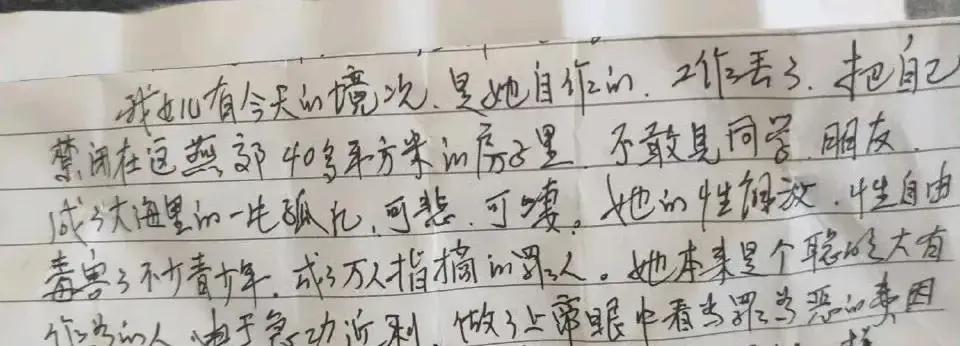 我女儿有今天的境况、是她自作的、工作丢了、把自己
禁闭在这燕郊40多平方米的房子里 不敢见同学、朋友、
成了大海里的一片孤礼、可悲、可嘆。她的性解放、性自由
毒害了不少青少年、成了万人指摘的罪人。她本来是个聪明大有
作为的人 由于急功近利、做了上帝眼中看为罪为恶的事